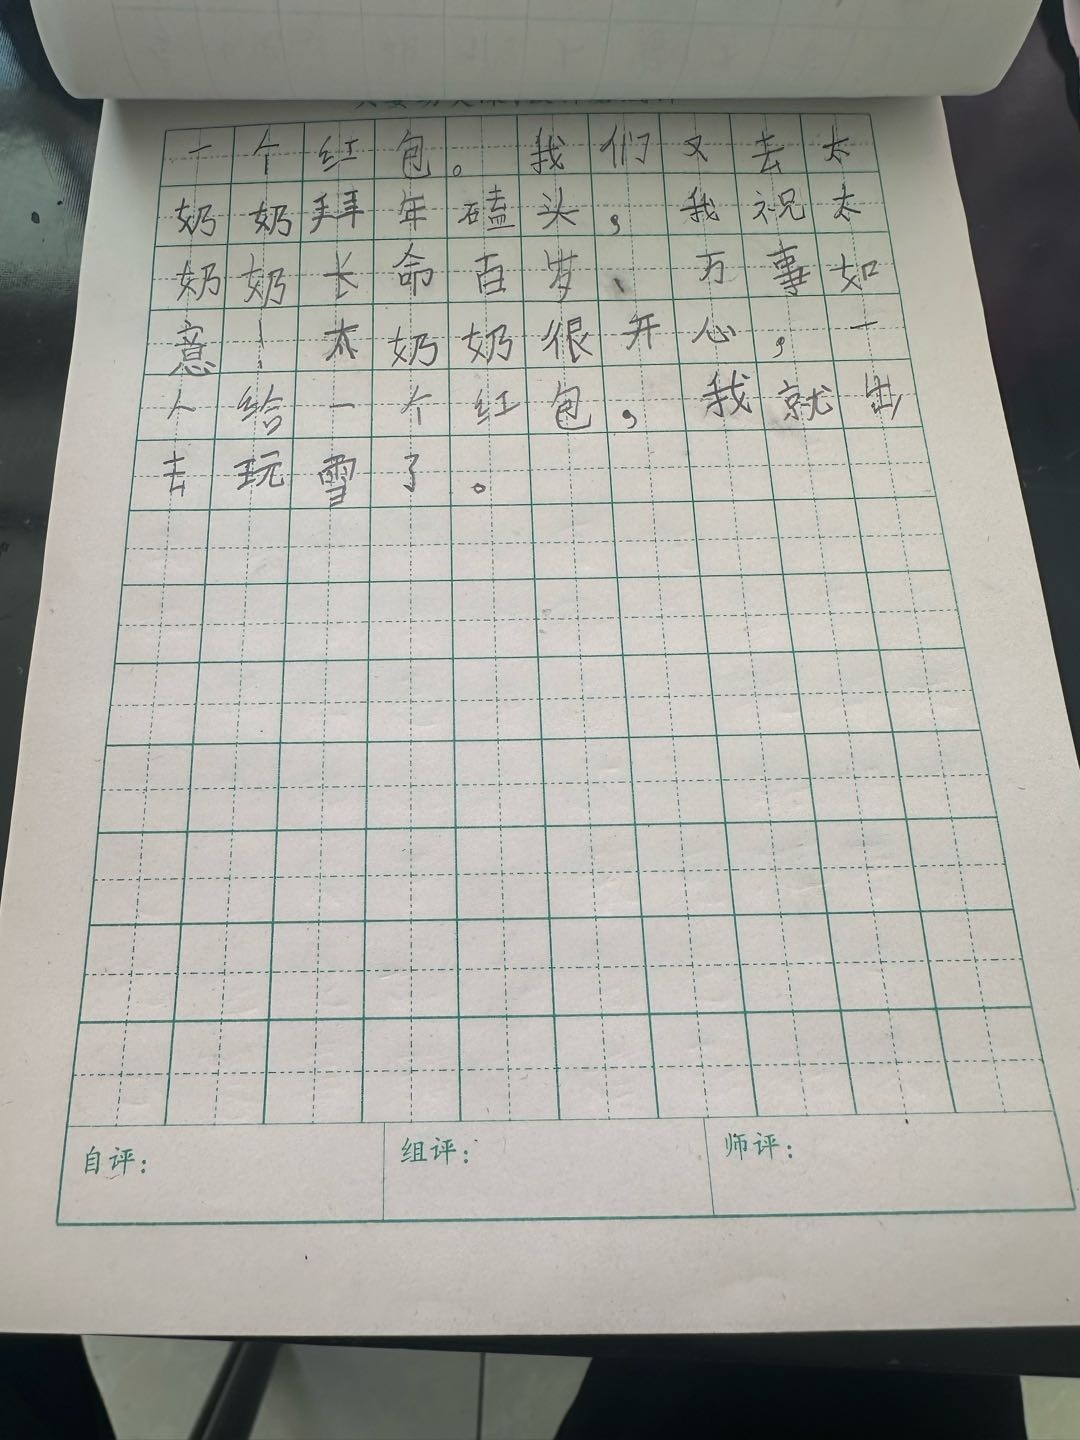 一个红包。我们又去太
奶奶拜年磕头，我祝太
奶奶长命百岁、万事如
意！太奶奶很开心，一
人给一个红包，我就出
去玩雪了。
自评： 组评： 师评：